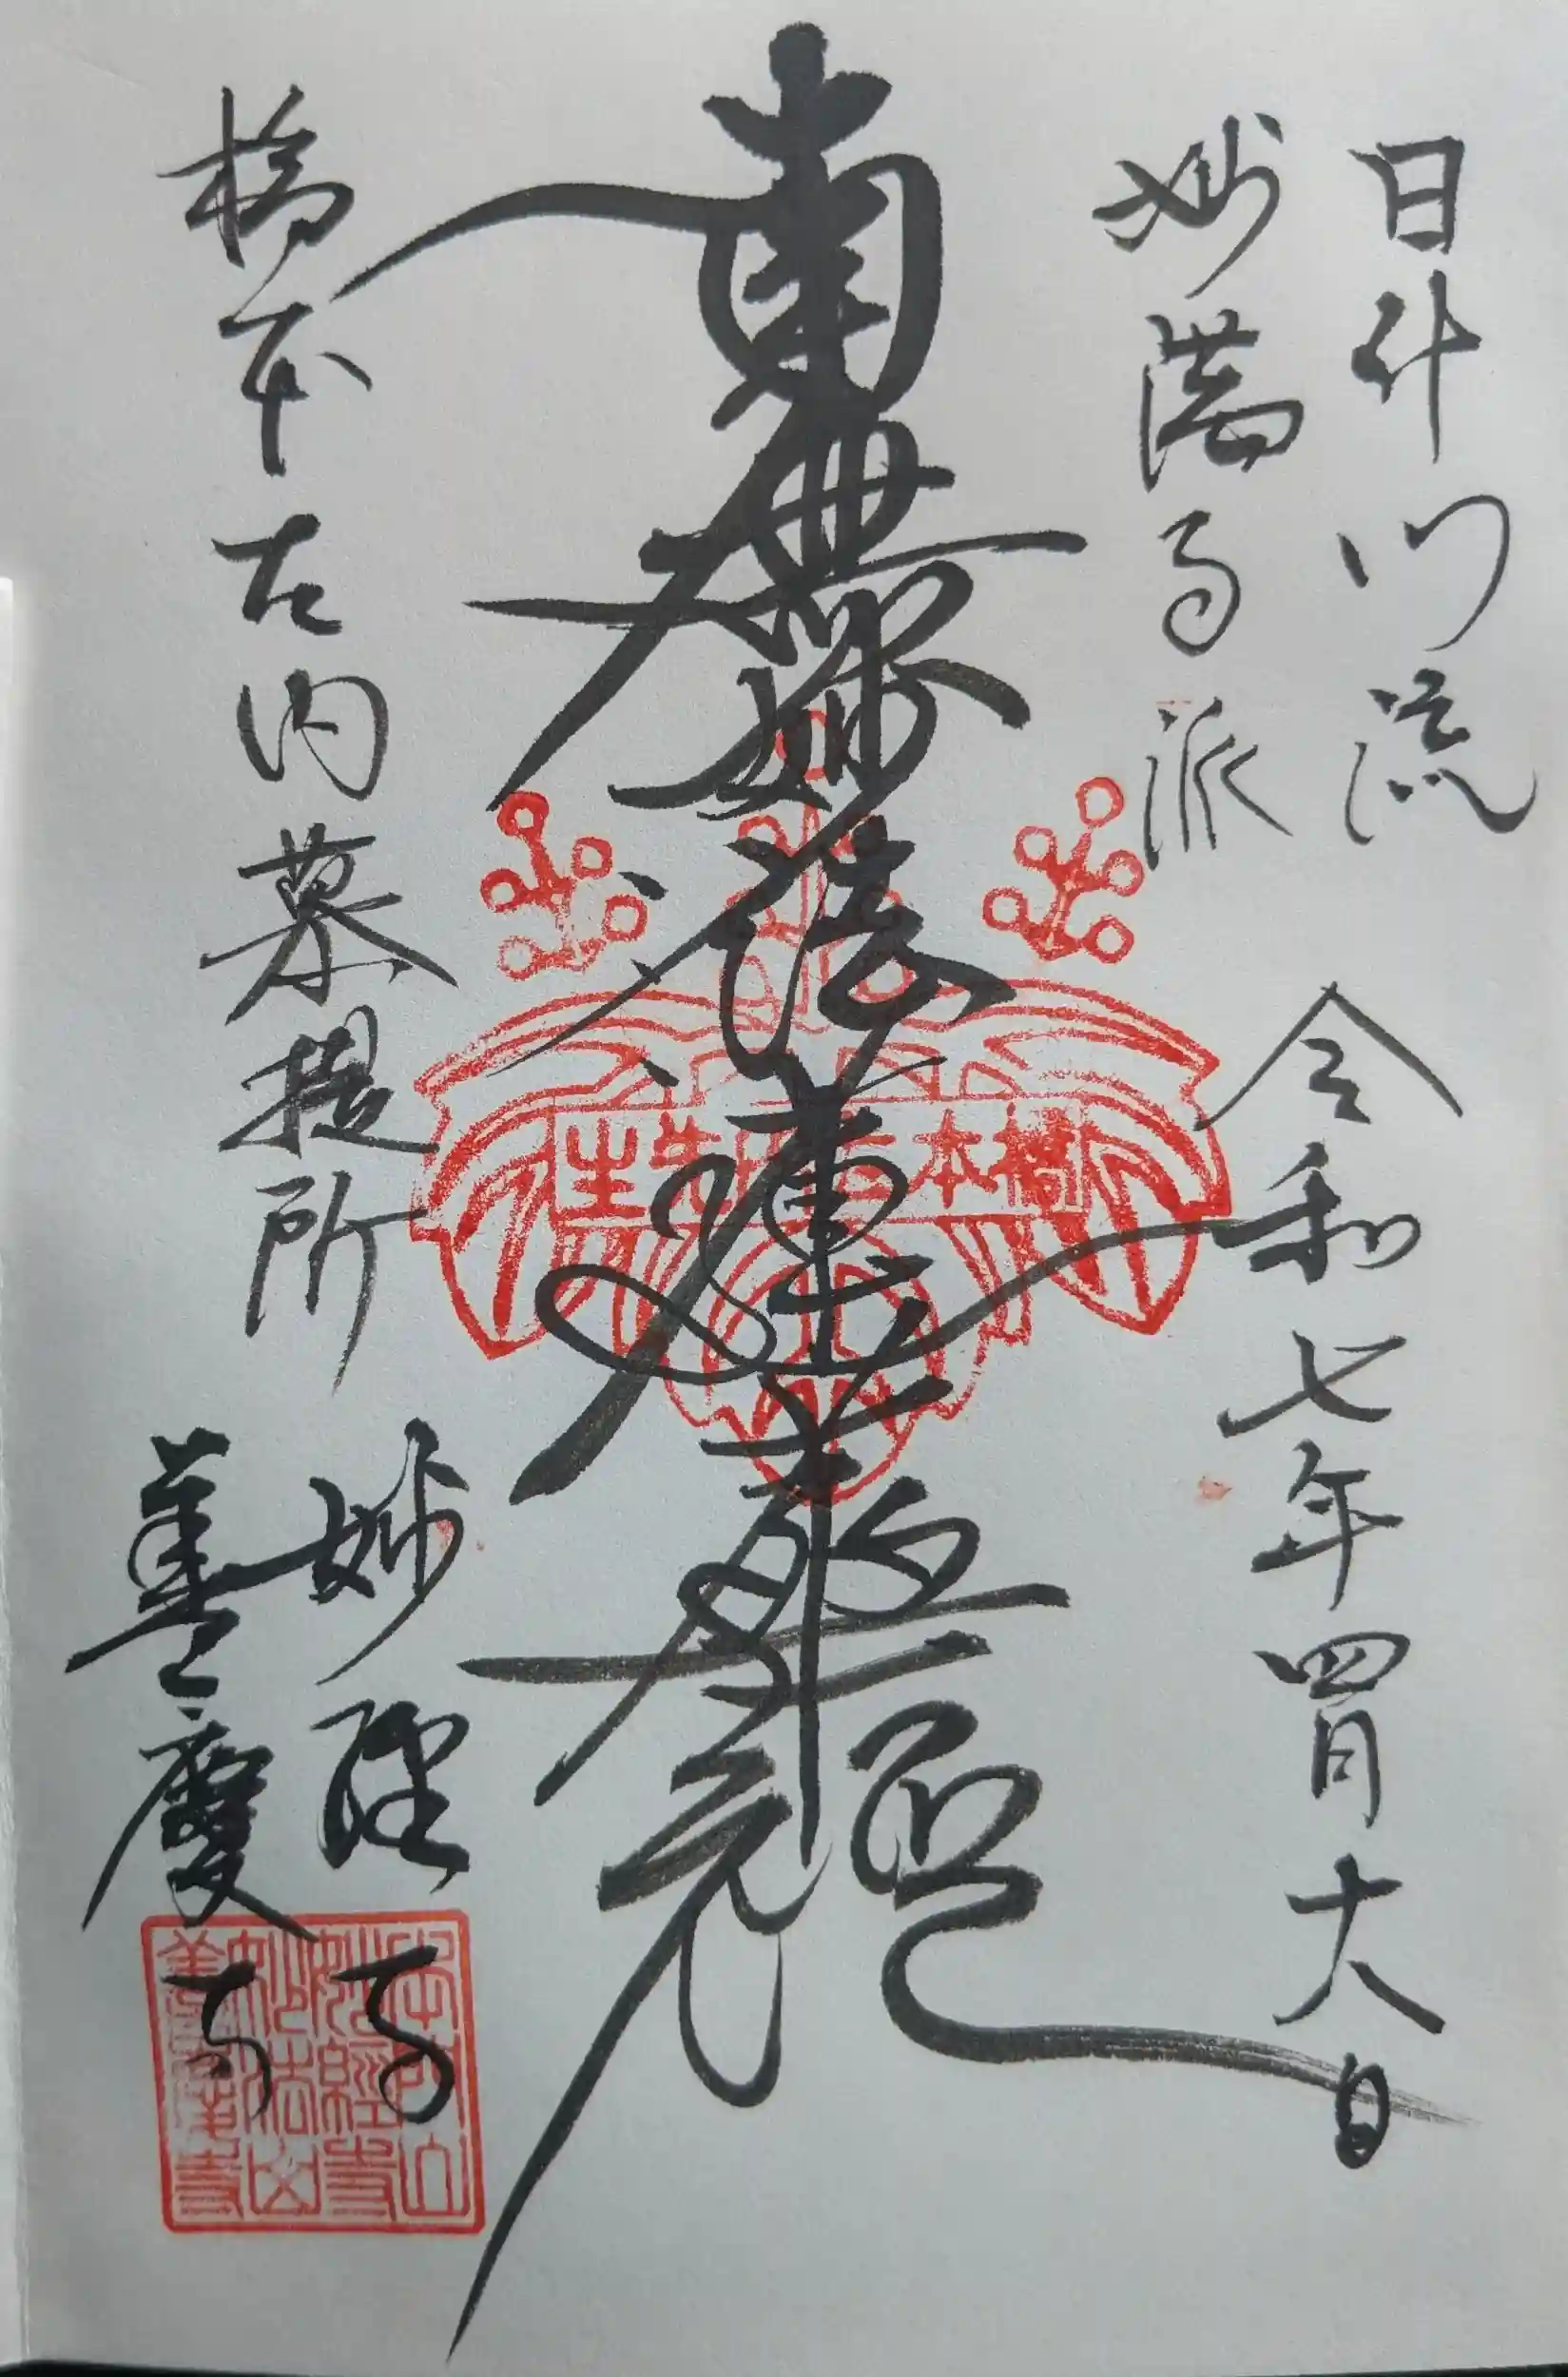 日什門流
妙満寺派
令和七年四月十六日
南無妙法蓮華經
橋本左内先生
橋本左内菩提所
妙経寺
善慶寺